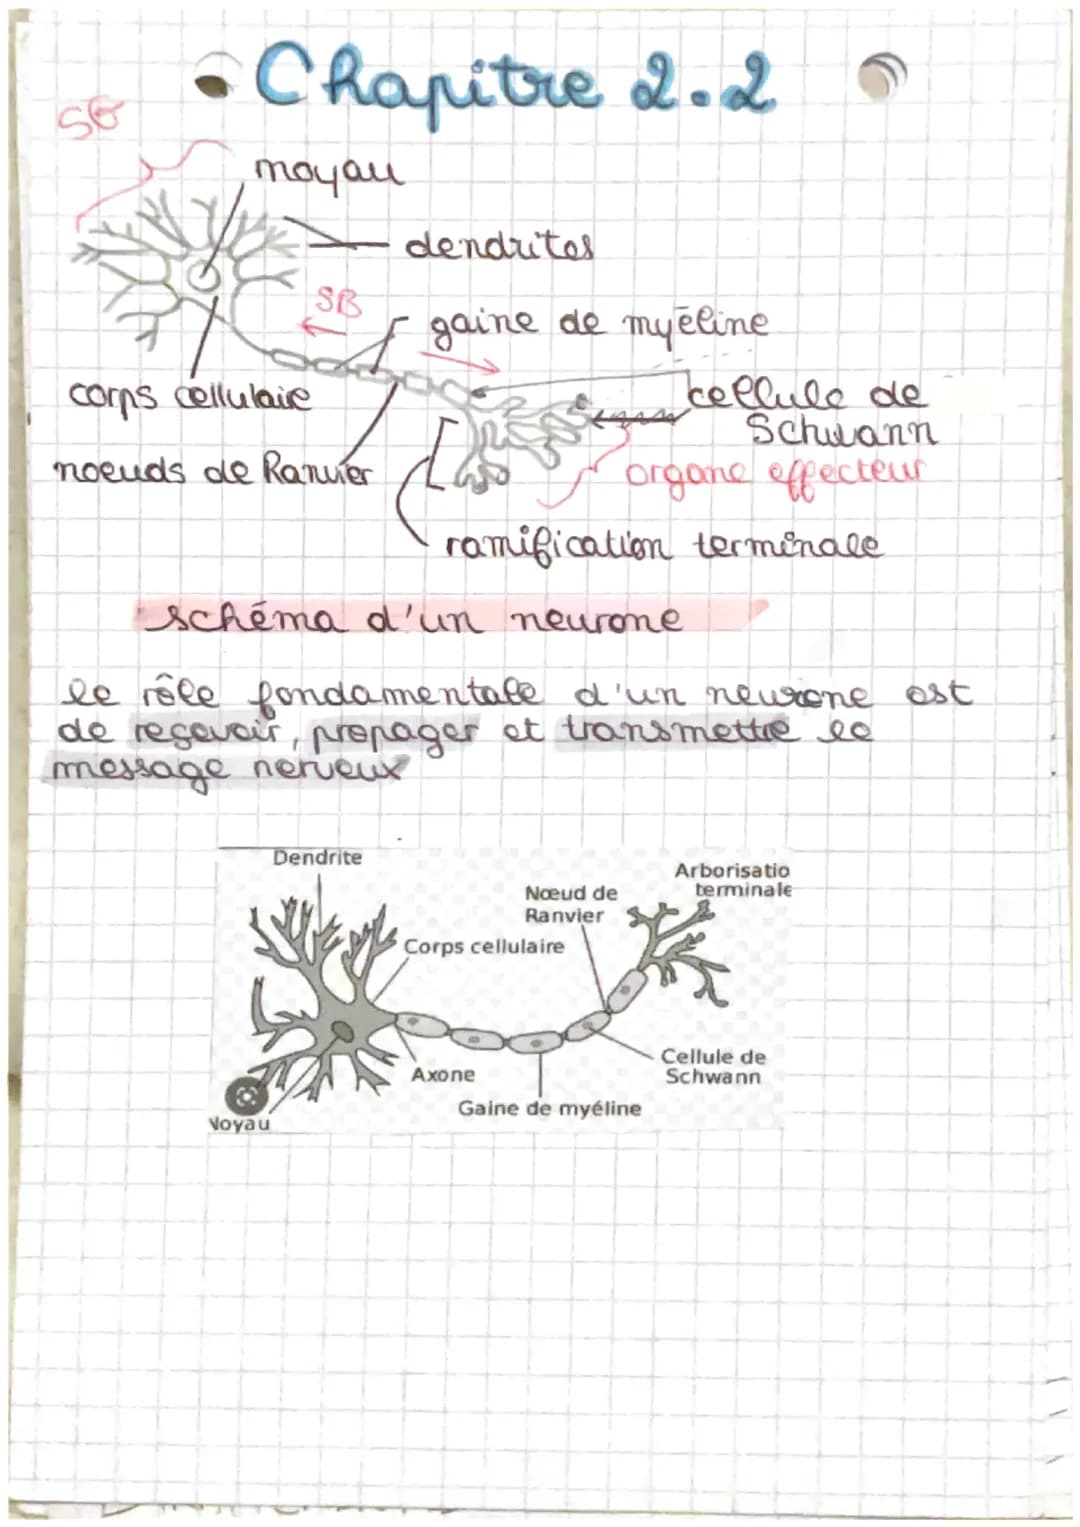 Chapitre 2.2
SG
noyau
dendrites
SB
gaine de myéline
corps cellulaire
cellule de
Schwann
noeuds de Ranvier
organe effecteur
ramification terminale
schéma d'un neurone
le rôle fondamentale d'un neurone est
de reçevoir, propager et transmettre le
message nerveux
Dendrite
Arborisatio
terminale
Nœud de
Ranvier
Corps cellulaire
Axone
Cellule de
Schwann
Gaine de myéline
Noyau